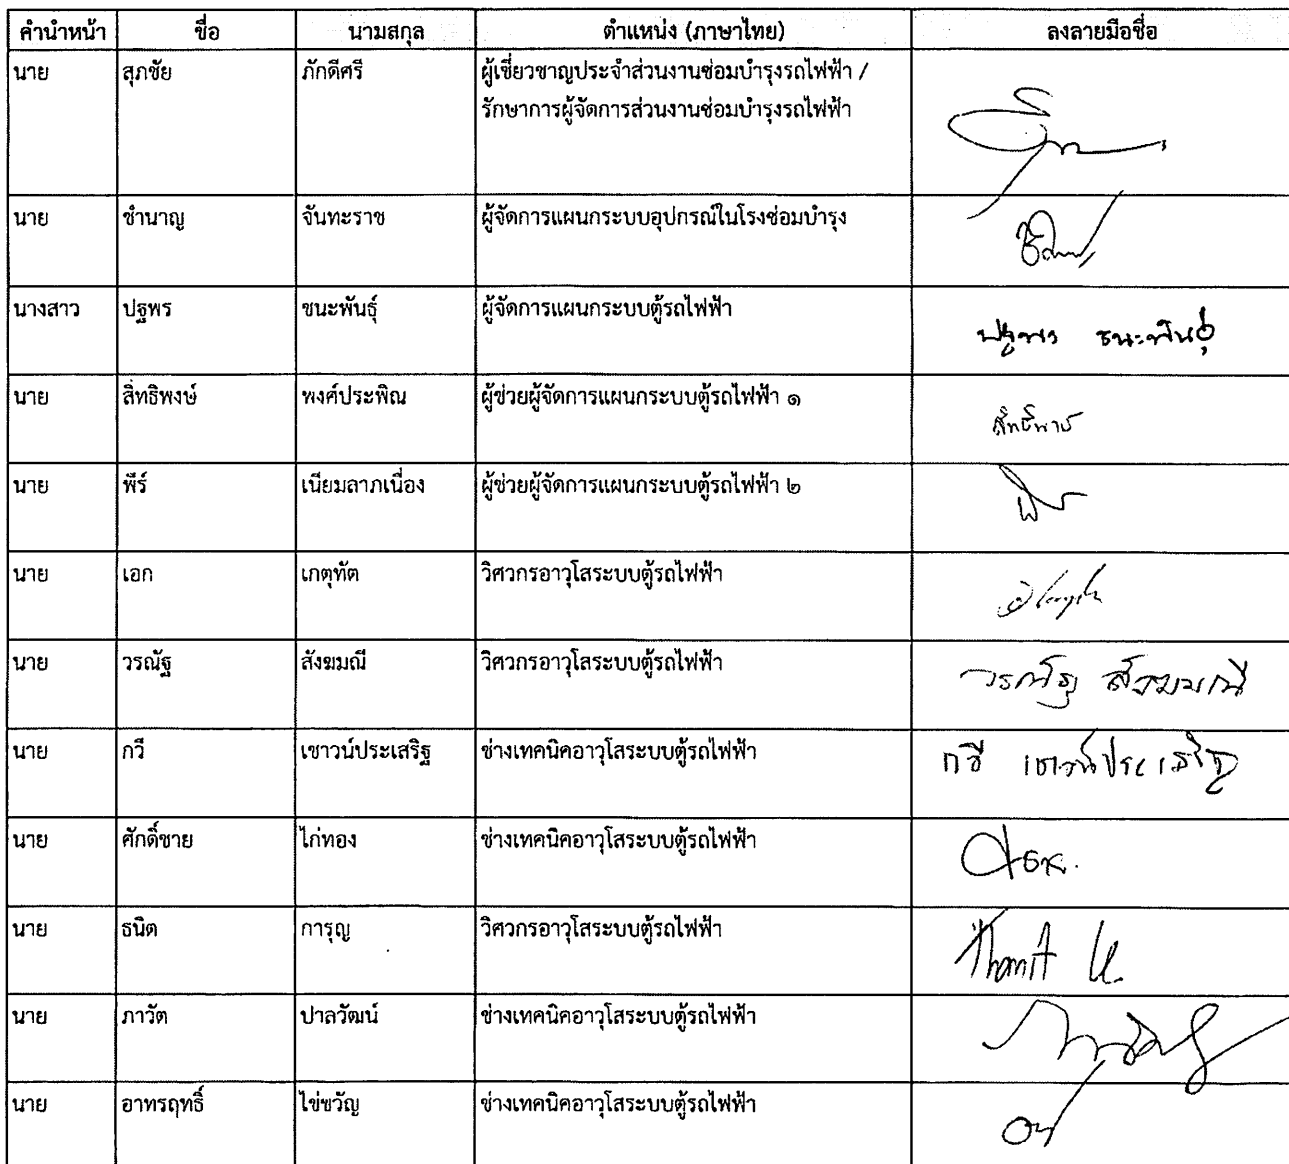 คำนำหน้า ชื่อ นามสกุล ตำแหน่ง (ภาษาไทย) ลงลายมือชื่อ
นาย สุภชัย ภักดีศรี ผู้เชี่ยวชาญประจำส่วนงานซ่อมบำรุงรถไฟฟ้า /
รักษาการผู้จัดการส่วนงานซ่อมบำรุงรถไฟฟ้า
นาย ชำนาญ จันทะราช ผู้จัดการแผนกระบบอุปกรณ์ในโรงซ่อมบำรุง
นางสาว ปฐพร ชนะพันธุ์ ผู้จัดการแผนกระบบตู้รถไฟฟ้า ปฐพร ชนะพันธุ์
นาย สิทธิพงษ์ พงศ์ประพิณ ผู้ช่วยผู้จัดการแผนกระบบตู้รถไฟฟ้า ๑ สิทธิพงษ์
นาย พีร์ เนียมลาภเนื่อง ผู้ช่วยผู้จัดการแผนกระบบตู้รถไฟฟ้า ๒
นาย เอก เกตุทัต วิศวกรอาวุโสระบบตู้รถไฟฟ้า
นาย วรณัฐ สังฆมณี วิศวกรอาวุโสระบบตู้รถไฟฟ้า วรณัฐ สังฆมณี
นาย กวี เชาวน์ประเสริฐ ช่างเทคนิคอาวุโสระบบตู้รถไฟฟ้า กวี เชาวน์ประเสริฐ
นาย ศักดิ์ชาย ไก่ทอง ช่างเทคนิคอาวุโสระบบตู้รถไฟฟ้า
นาย ธนิต การุญ วิศวกรอาวุโสระบบตู้รถไฟฟ้า Thanit K.
นาย ภาวัต ปาลวัฒน์ ช่างเทคนิคอาวุโสระบบตู้รถไฟฟ้า
นาย อาทรฤทธิ์ ไข่ขวัญ ช่างเทคนิคอาวุโสระบบตู้รถไฟฟ้า